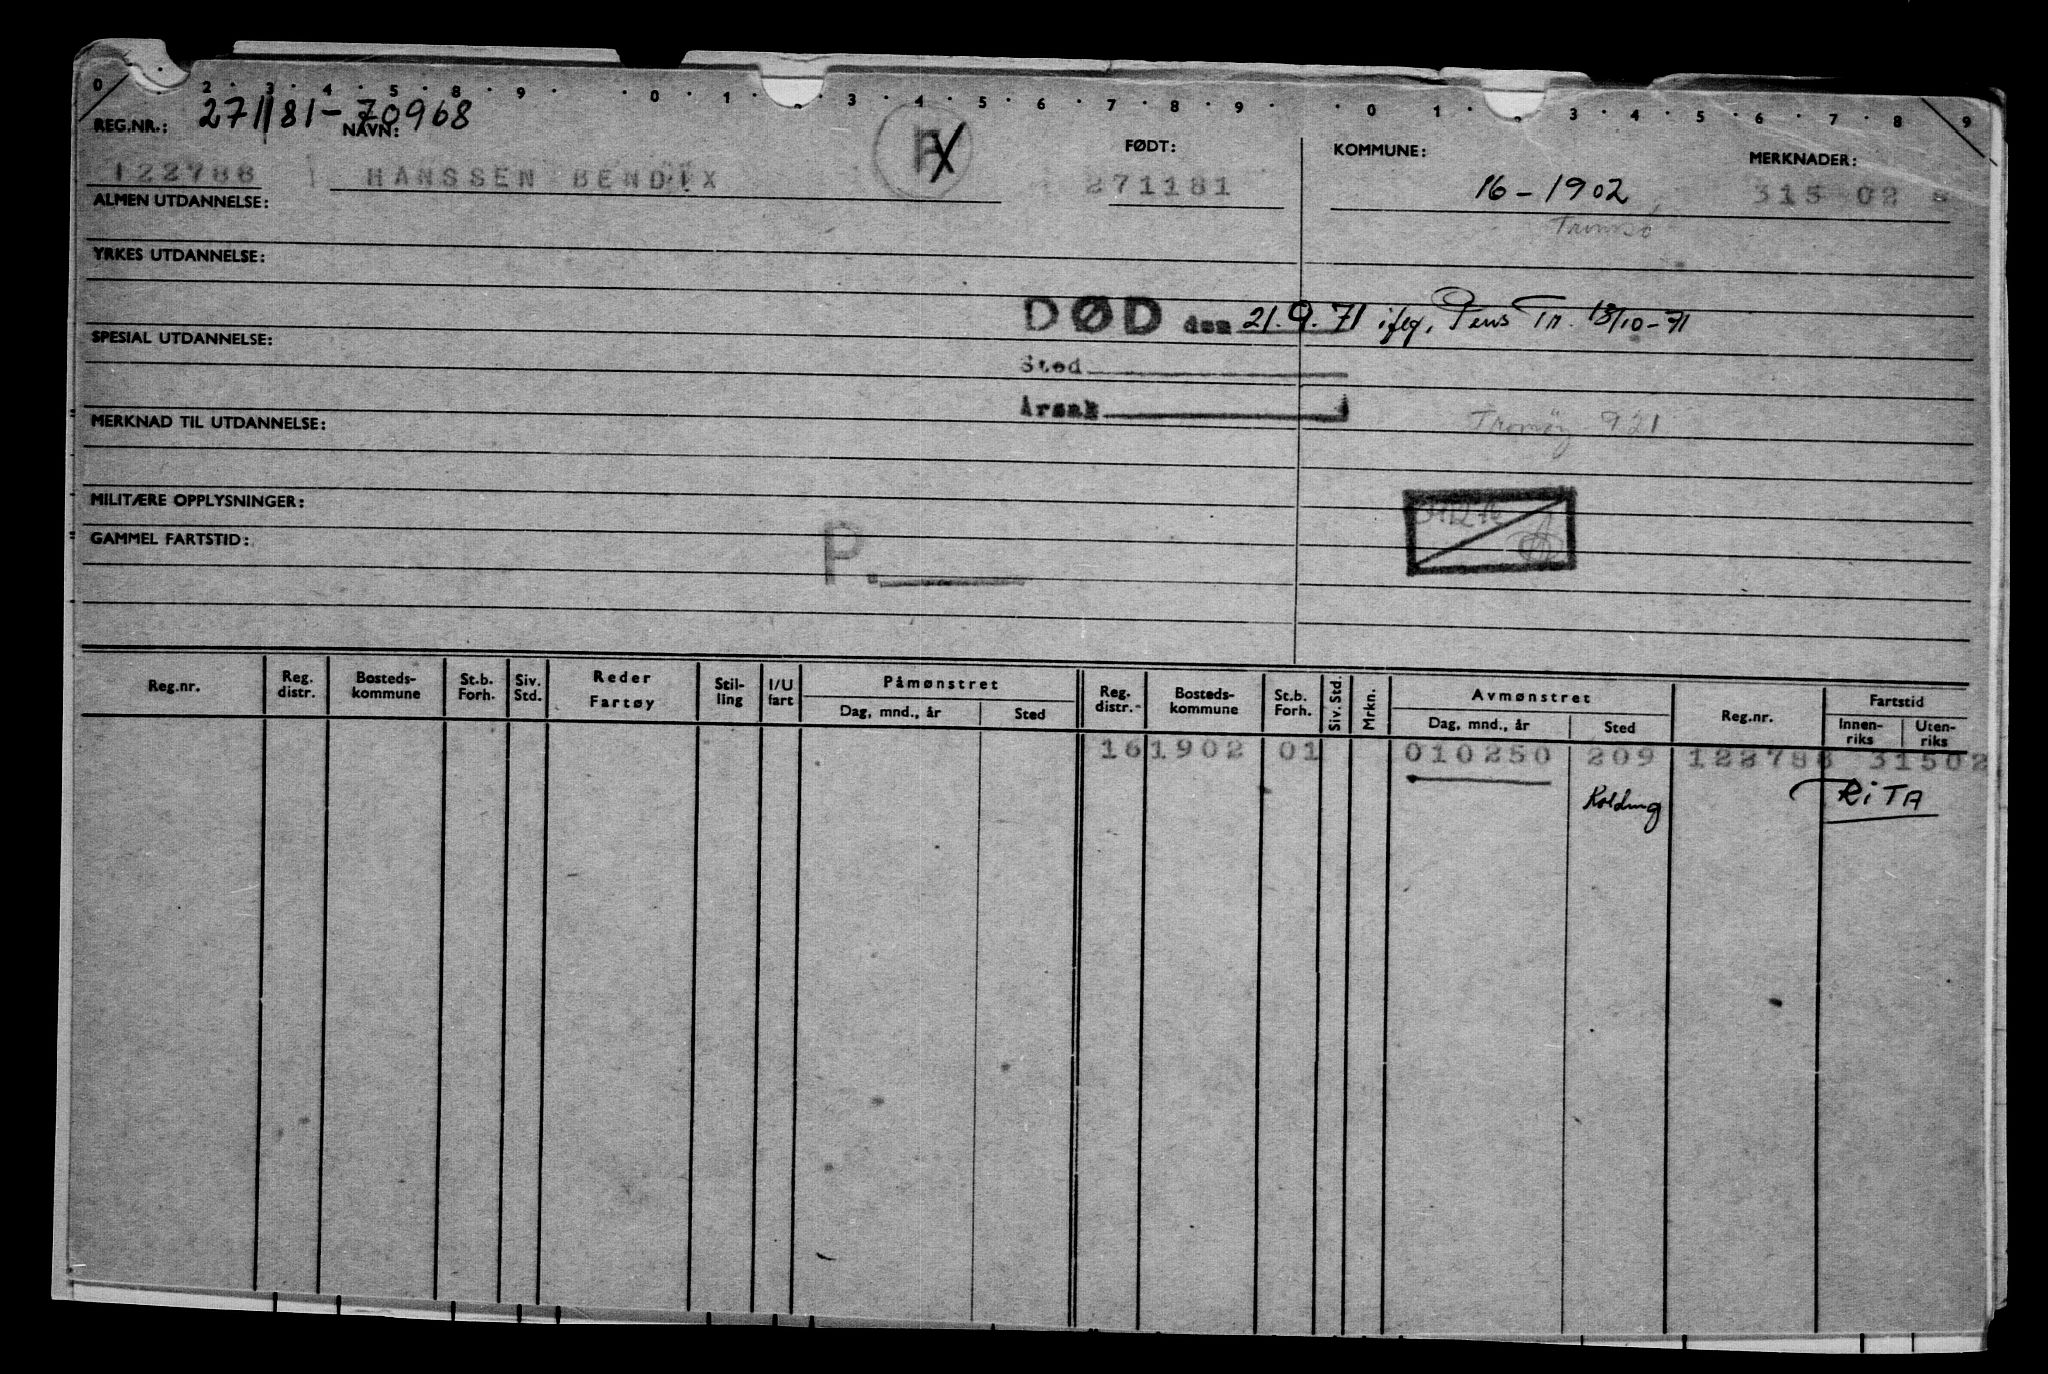 0 · 2 · 3 · 4 · 5 · 8 · 9 · · 0 · 1 · 2 · 3 · 4 · 5 · 6 · 7 · 8 · 9 · · 0 · 1 · 2 · 3 · 4 · 5 · 6 · 7 · 8 · 9
271181-70968
REG.NR.: NAVN: FØDT: KOMMUNE: MERKNADER:
122788 HANSSEN BENDIX 271181 16-1902 315 02
Tromsø
ALMEN UTDANNELSE:
YRKES UTDANNELSE:
DØD den 21.9.71 iflg. Pens Tr. 13/10-71
SPESIAL UTDANNELSE:
Sted
Årsak
MERKNAD TIL UTDANNELSE:
Tromøy 921
MILITÆRE OPPLYSNINGER:
GAMMEL FARTSTID:
P.
Reg.nr. Reg. distr. Bosteds-kommune St.b. Forh. Siv. Std. Reder Fartøy Stil-ling I/U fart Påmønstret Dag, mnd., år Sted Reg. distr. Bosteds-kommune St.b. Forh. Siv. Std. Mrkn. Avmønstret Dag, mnd., år Sted Reg.nr. Fartstid Innen-riks Uten-riks
161902 01 010250 209 122788 31502
Kolding RITA